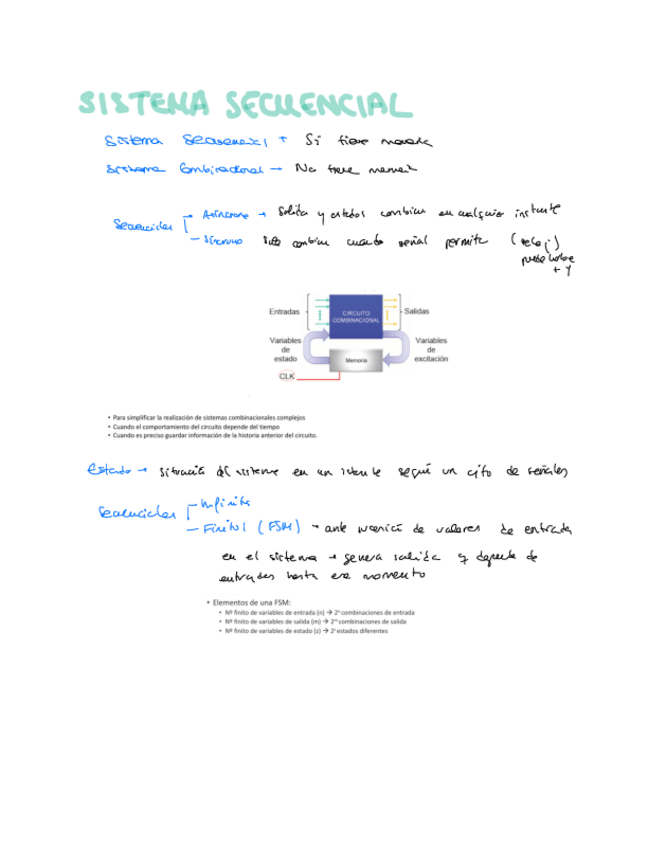 SISTEMA SECUENCIAL
Sistema Secuencial → Si tiene memoria
Sistema Combinacional → No tiene memoria
Secuenciales → Asíncrono → Salida y estados cambian en cualquier instante
– Síncrono Solo cambian cuando señal permite (reloj)
puede haber
+ 1
Entradas
CIRCUITO
COMBINACIONAL
Salidas
Variables
de
estado
Memoria
Variables
de
excitación
CLK
• Para simplificar la realización de sistemas combinacionales complejos
• Cuando el comportamiento del circuito depende del tiempo
• Cuando es preciso guardar información de la historia anterior del circuito.
Estado → situación del sistema en un instante según un cjto de señales
Secuenciales – Infinitos
– Finitos (FSM) → ante de valores de entrada
en el sistema → genera salida q depende de
entradas hasta ese momento
• Elementos de una FSM:
• Nº finito de variables de entrada (n) → 2ⁿ combinaciones de entrada
• Nº finito de variables de salida (m) → 2ᵐ combinaciones de salida
• Nº finito de variables de estado (z) → 2ᶻ estados diferentes